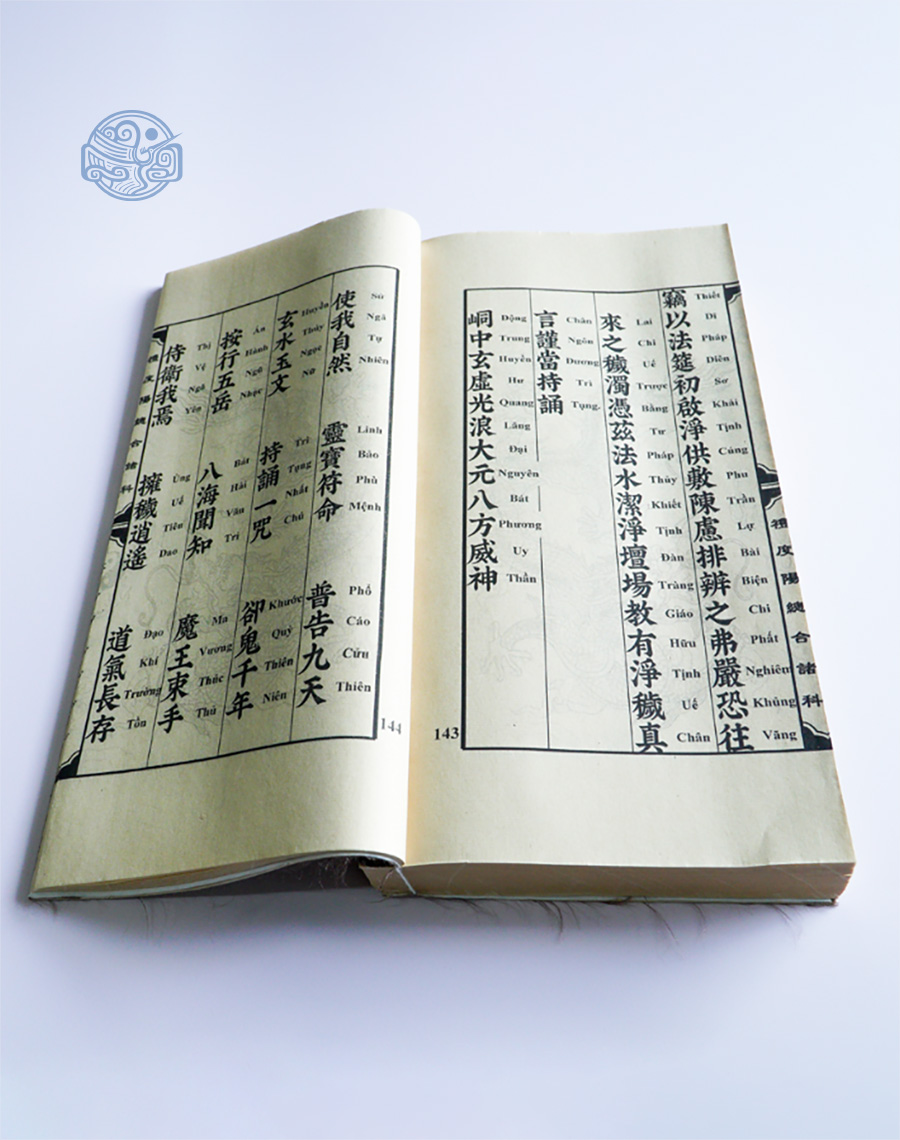 禮度陽總合諸科
竊以法筵初啟淨供敷陳慮排辨之弗嚴恐往
Thiết Dĩ Pháp Diên Sơ Khải Tịnh Cúng Phu Trần Lự Bài Biện Chi Phất Nghiêm Khủng Vãng
來之穢濁憑茲法水潔淨壇場教有淨穢真
Lai Chi Uế Trược Bằng Tư Pháp Thủy Khiết Tịnh Đàn Tràng Giáo Hữu Tịnh Uế Chân
言謹當持誦
Chân Ngôn Dương Trì Tụng.
峒中玄虛光浪大元八方威神
Động Trung Huyền Hư Quang Lãng Đại Nguyên Bát Phương Uy Thần
143
使我自然 靈寶符命 普告九天
Sử Ngã Tự Nhiên Linh Bảo Phù Mệnh Phổ Cáo Cửu Thiên
玄水玉文 持誦一咒 卻鬼千年
Huyền Thủy Ngọc Nữ Trì Tụng Nhất Chú Khước Quỷ Thiên Niên
按行五岳 八海聞知 魔王束手
Án Hành Ngũ Nhạc Bát Hải Văn Tri Ma Vương Thúc Thủ
侍衛我焉 擁穢逍遙 道氣長存
Thị Vệ Ngã Yên Ủng Uế Tiêu Dao Đạo Khí Trường Tồn
144
禮度陽總合諸科